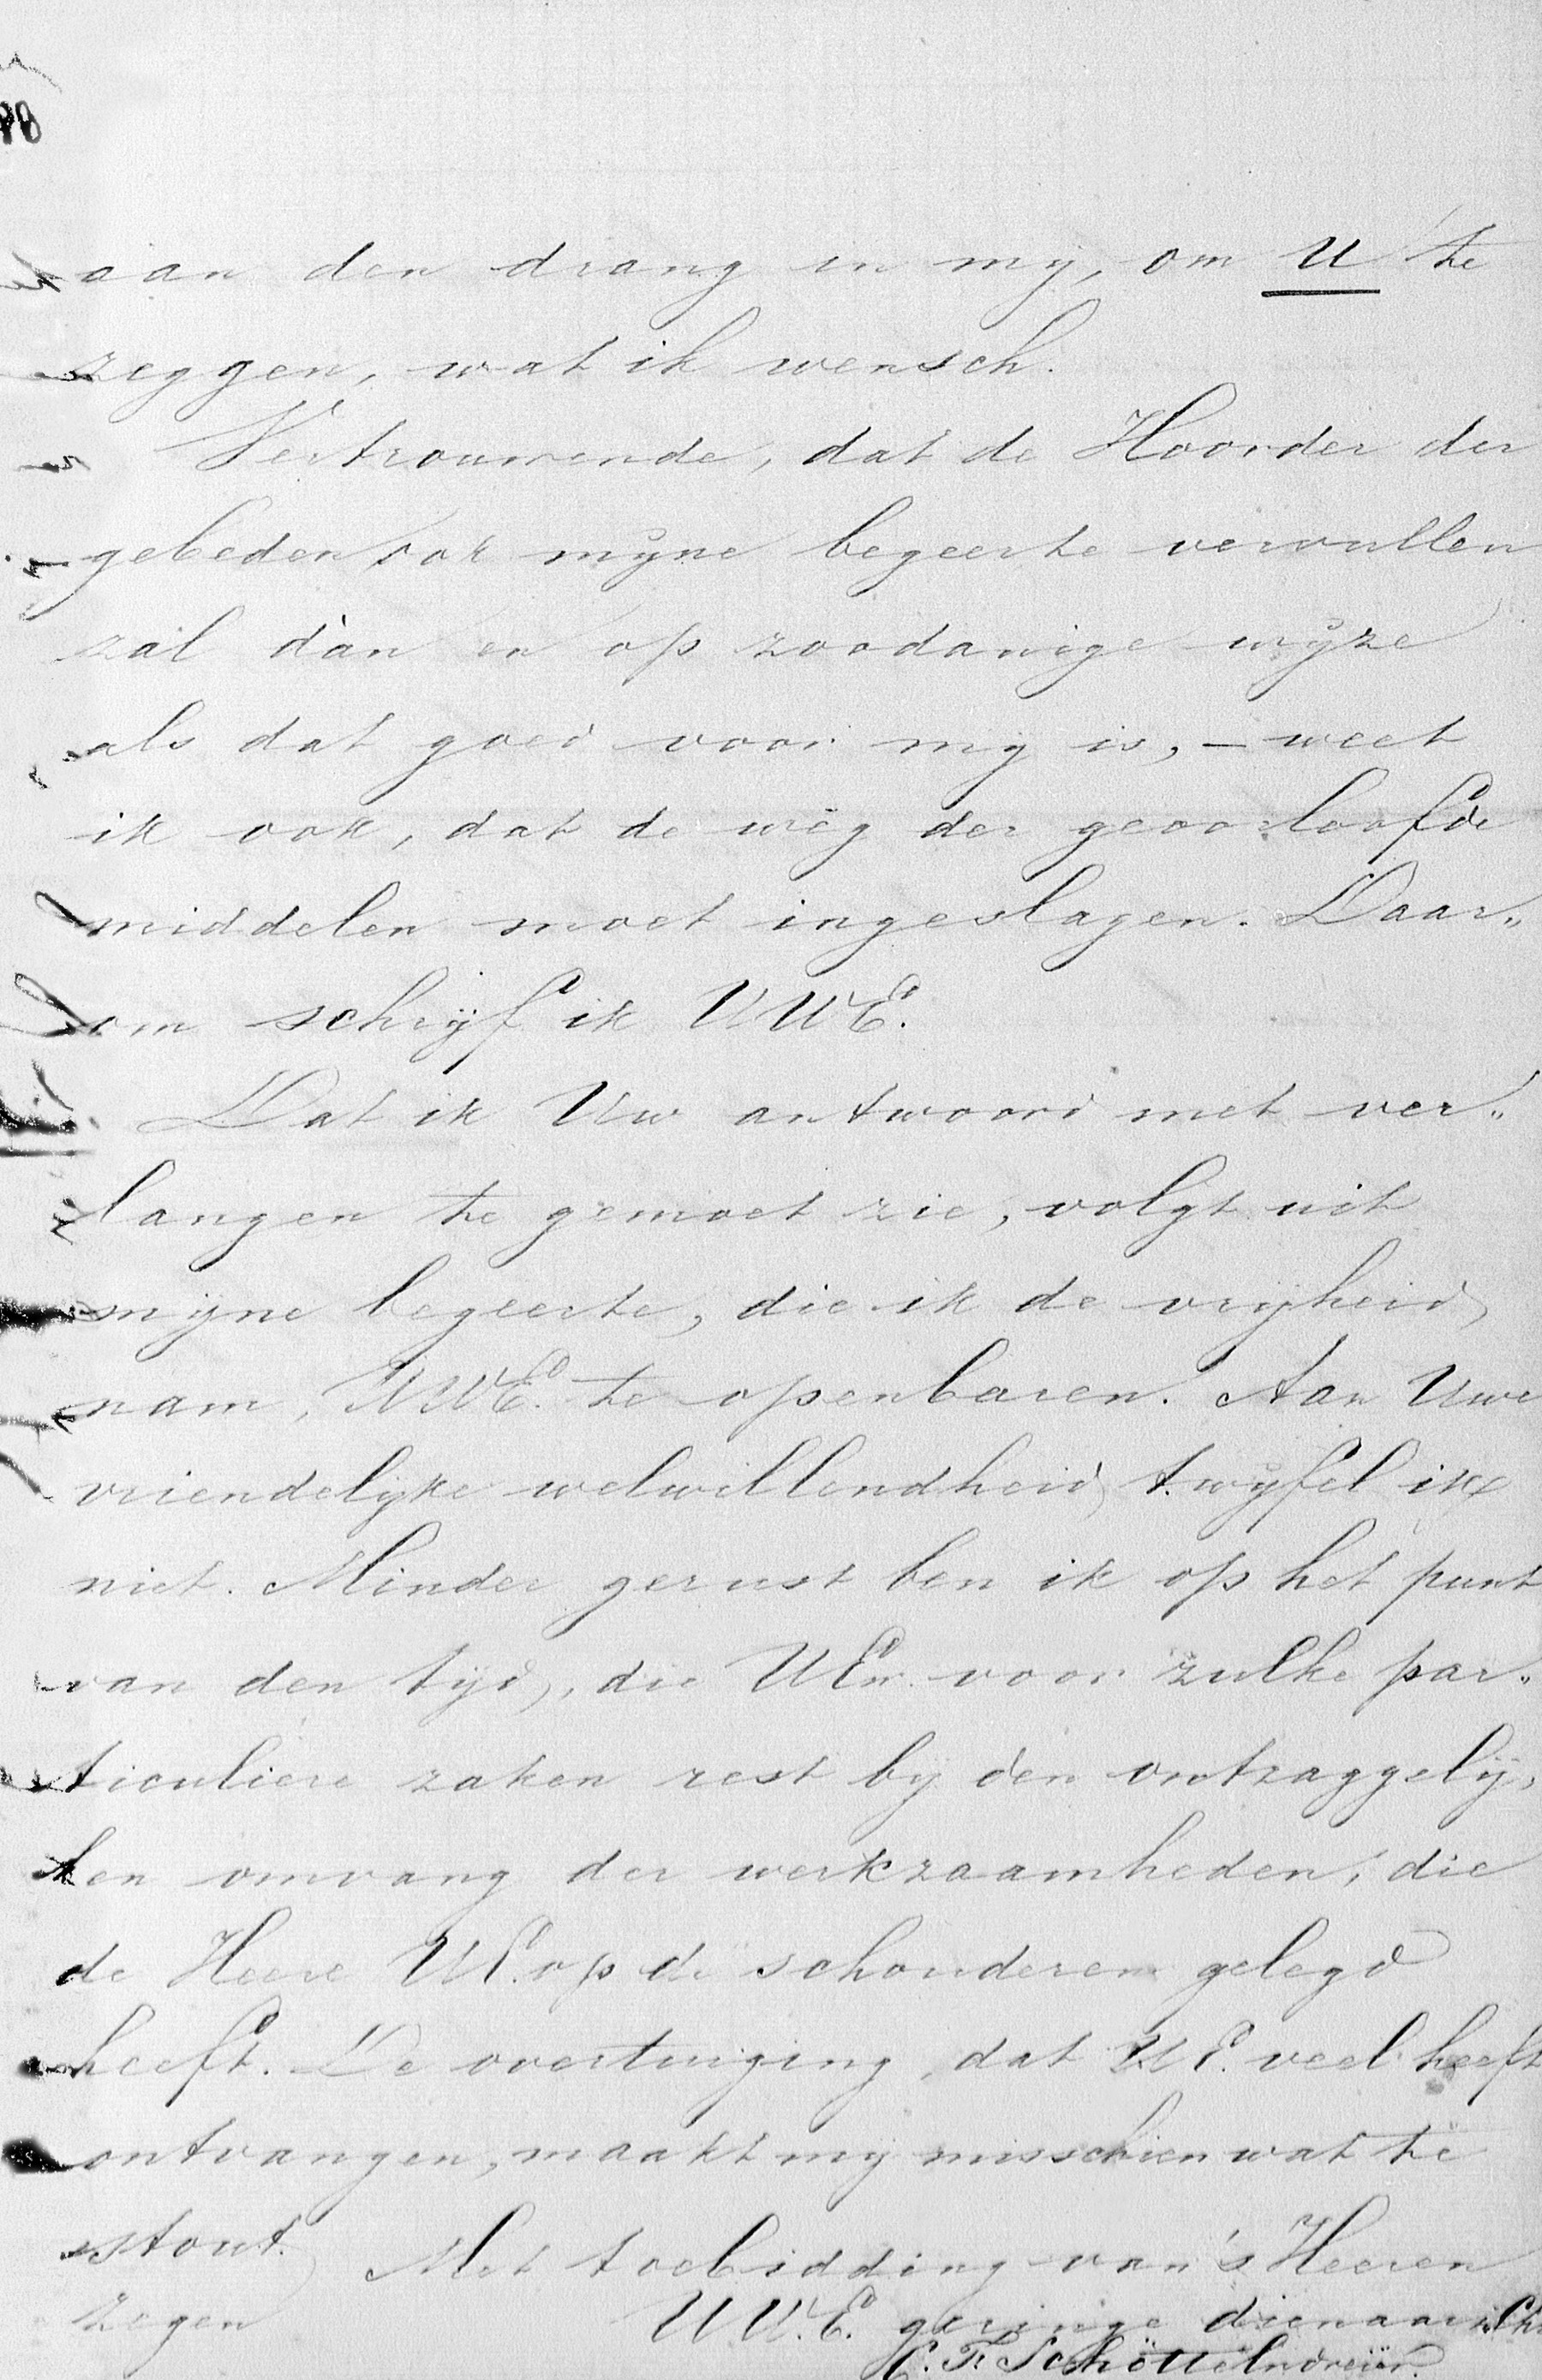 aan den drang in mij, om U te
zeggen, wat ik wensch.
Vertrouwende, dat de Hoorder der
gebeden ook mijne begeerte vervullen
zal dàn en op zoodanige wijze
als dat goed voor mij is, – weet
ik ook, dat de weg der geoorloofde
middelen moet ingeslagen. Daar„
om schrijf ik UWE.
Dat ik Uw antwoord met ver„
langen te gemoet zie, volgt uit
mijne begeerte, die ik de vrijheid
nam, UWE. te openbaren. Aan Uwe
vriendelijke welwillendheid twijfel ik
niet. Minder gerust ben ik op het punt
van den tijd, die UEw. voor zulke par„
ticuliere zaken rest bij den ontzaggelij„
ken omvang der werkzaamheden, die
de Heere UE. op de schouderen gelegd
heeft. De overtuiging, dat UE. veel heeft
ontvangen, maakt mij misschien wat te
stout. Met toebidding van 's Heeren
zegen
UW.E. geringe dienaar i. Chr
C. F. Schöttelndreier.